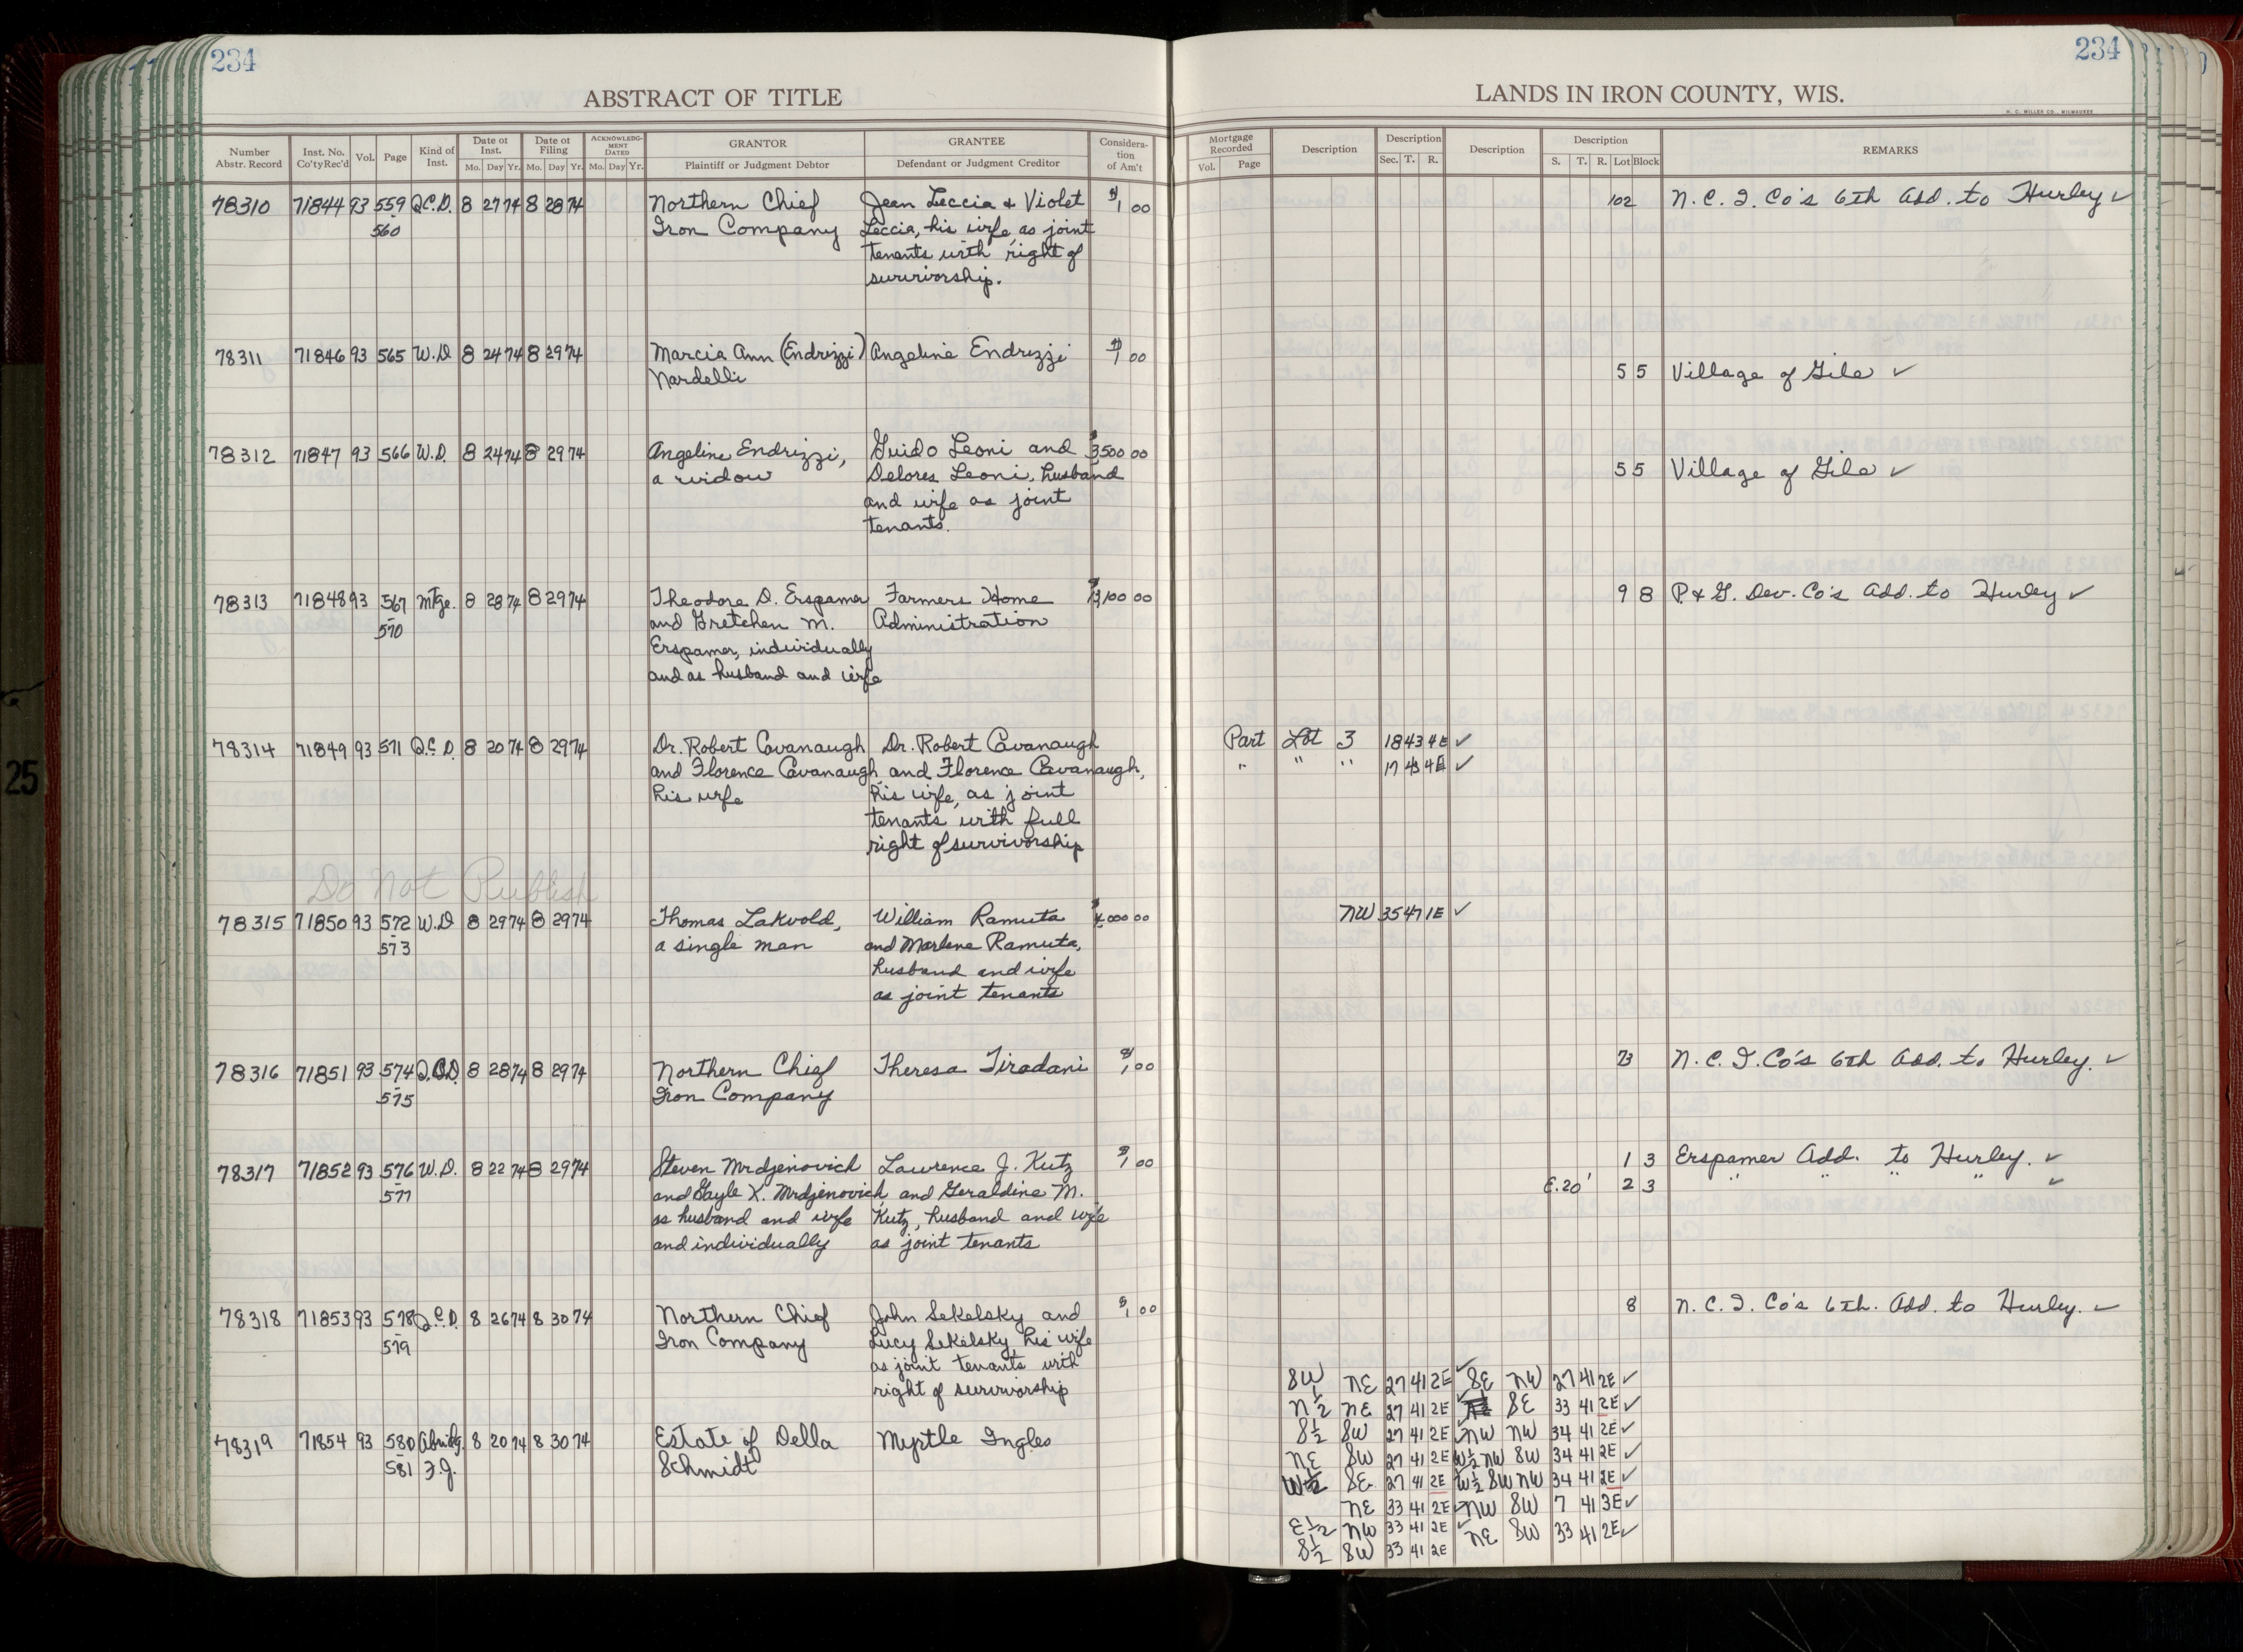 234
ABSTRACT OF TITLE
Number Abstr. Record | Inst. No. Co'ty Rec'd | Vol. | Page | Kind of Inst. | Date of Inst. Mo. Day Yr. | Date of Filing Mo. Day Yr. | ACKNOWLEDGMENT DATED Mo. Day Yr. | GRANTOR Plaintiff or Judgment Debtor | GRANTEE Defendant or Judgment Creditor | Consideration of Am't
78310 71844 93 559 Q.C.D. 8 27 74 8 28 74 Northern Chief Jean Leccia & Violet $1 00
- 560 Iron Company Leccia, his wife, as joint
tenants with right of
survivorship.
78311 71846 93 565 W.D. 8 24 74 8 29 74 Marcia Ann (Endrizzi) Angeline Endrizzi $1 00
Nardelli
78312 71847 93 566 W.D. 8 24 74 8 29 74 Angeline Endrizzi, Guido Leoni and $3500 00
a widow Delores Leoni, husband
and wife as joint
tenants.
78313 71848 93 567 Mtge. 8 28 74 8 29 74 Theodore D. Erspamer Farmers Home $13,100 00
- 570 and Gretchen M. Administration
Erspamer, individually
and as husband and wife
78314 71849 93 571 Q.C.D. 8 20 74 8 29 74 Dr. Robert Cavanaugh Dr. Robert Cavanaugh
and Florence Cavanaugh and Florence Cavanaugh,
his wife his wife, as joint
tenants with full
right of survivorship
Do Not Publish
78315 71850 93 572 W.D 8 29 74 8 29 74 Thomas Lakvold, William Ramuta $4,000 00
- 573 a single man and Marlene Ramuta,
husband and wife
as joint tenants
78316 71851 93 574 Q.C.D. 8 28 74 8 29 74 Northern Chief Theresa Tiradani $1 00
- 575 Iron Company
78317 71852 93 576 W.D. 8 22 74 8 29 74 Steven Mrdjenovich Lawrence J. Kutz $1 00
- 577 and Gayle K. Mrdjenovich and Geraldine M.
as husband and wife Kutz, husband and wife
and individually as joint tenants
78318 71853 93 578 Q.C.D. 8 26 74 8 30 74 Northern Chief John Sekelsky and $1 00
- 579 Iron Company Lucy Sekelsky, his wife
as joint tenants with
right of survivorship
78319 71854 93 580 Abridg. 8 20 74 8 30 74 Estate of Della Myrtle Ingles
- 581 F.J. Schmidt
234
LANDS IN IRON COUNTY, WIS.
H. C. MILLER CO., MILWAUKEE
Mortgage Recorded Vol. Page | Description | Description Sec. T. R. | Description | Description S. T. R. Lot Block | REMARKS
102 N. C. I. Co's 6th Add. to Hurley ✓
5 5 Village of Gile ✓
5 5 Village of Gile ✓
9 8 P. & G. Dev. Co's Add. to Hurley ✓
Part Lot 3 18 43 4E ✓
" " " 17 43 4E ✓
NW 35 47 1E ✓
73 N. C. I. Co's 6th Add. to Hurley. ✓
1 3 Erspamer Add. to Hurley. ✓
E. 20' 2 3 " " " " ✓
8 N. C. I. Co's 6th. Add. to Hurley. ✓
SW NE 27 41 2E ✓ SE NW 27 41 2E ✓
N½ NE 27 41 2E ✓ SE 33 41 2E ✓
S½ SW 27 41 2E ✓ NW NW 34 41 2E ✓
NE SW 27 41 2E W½ NW SW 34 41 2E ✓
W½ SE 27 41 2E W½ SW NW 34 41 2E ✓
NE 33 41 2E ✓ NW SW 7 41 3E ✓
E½ NW 33 41 2E ✓ NE SW 33 41 2E ✓
S½ SW 33 41 2E
25